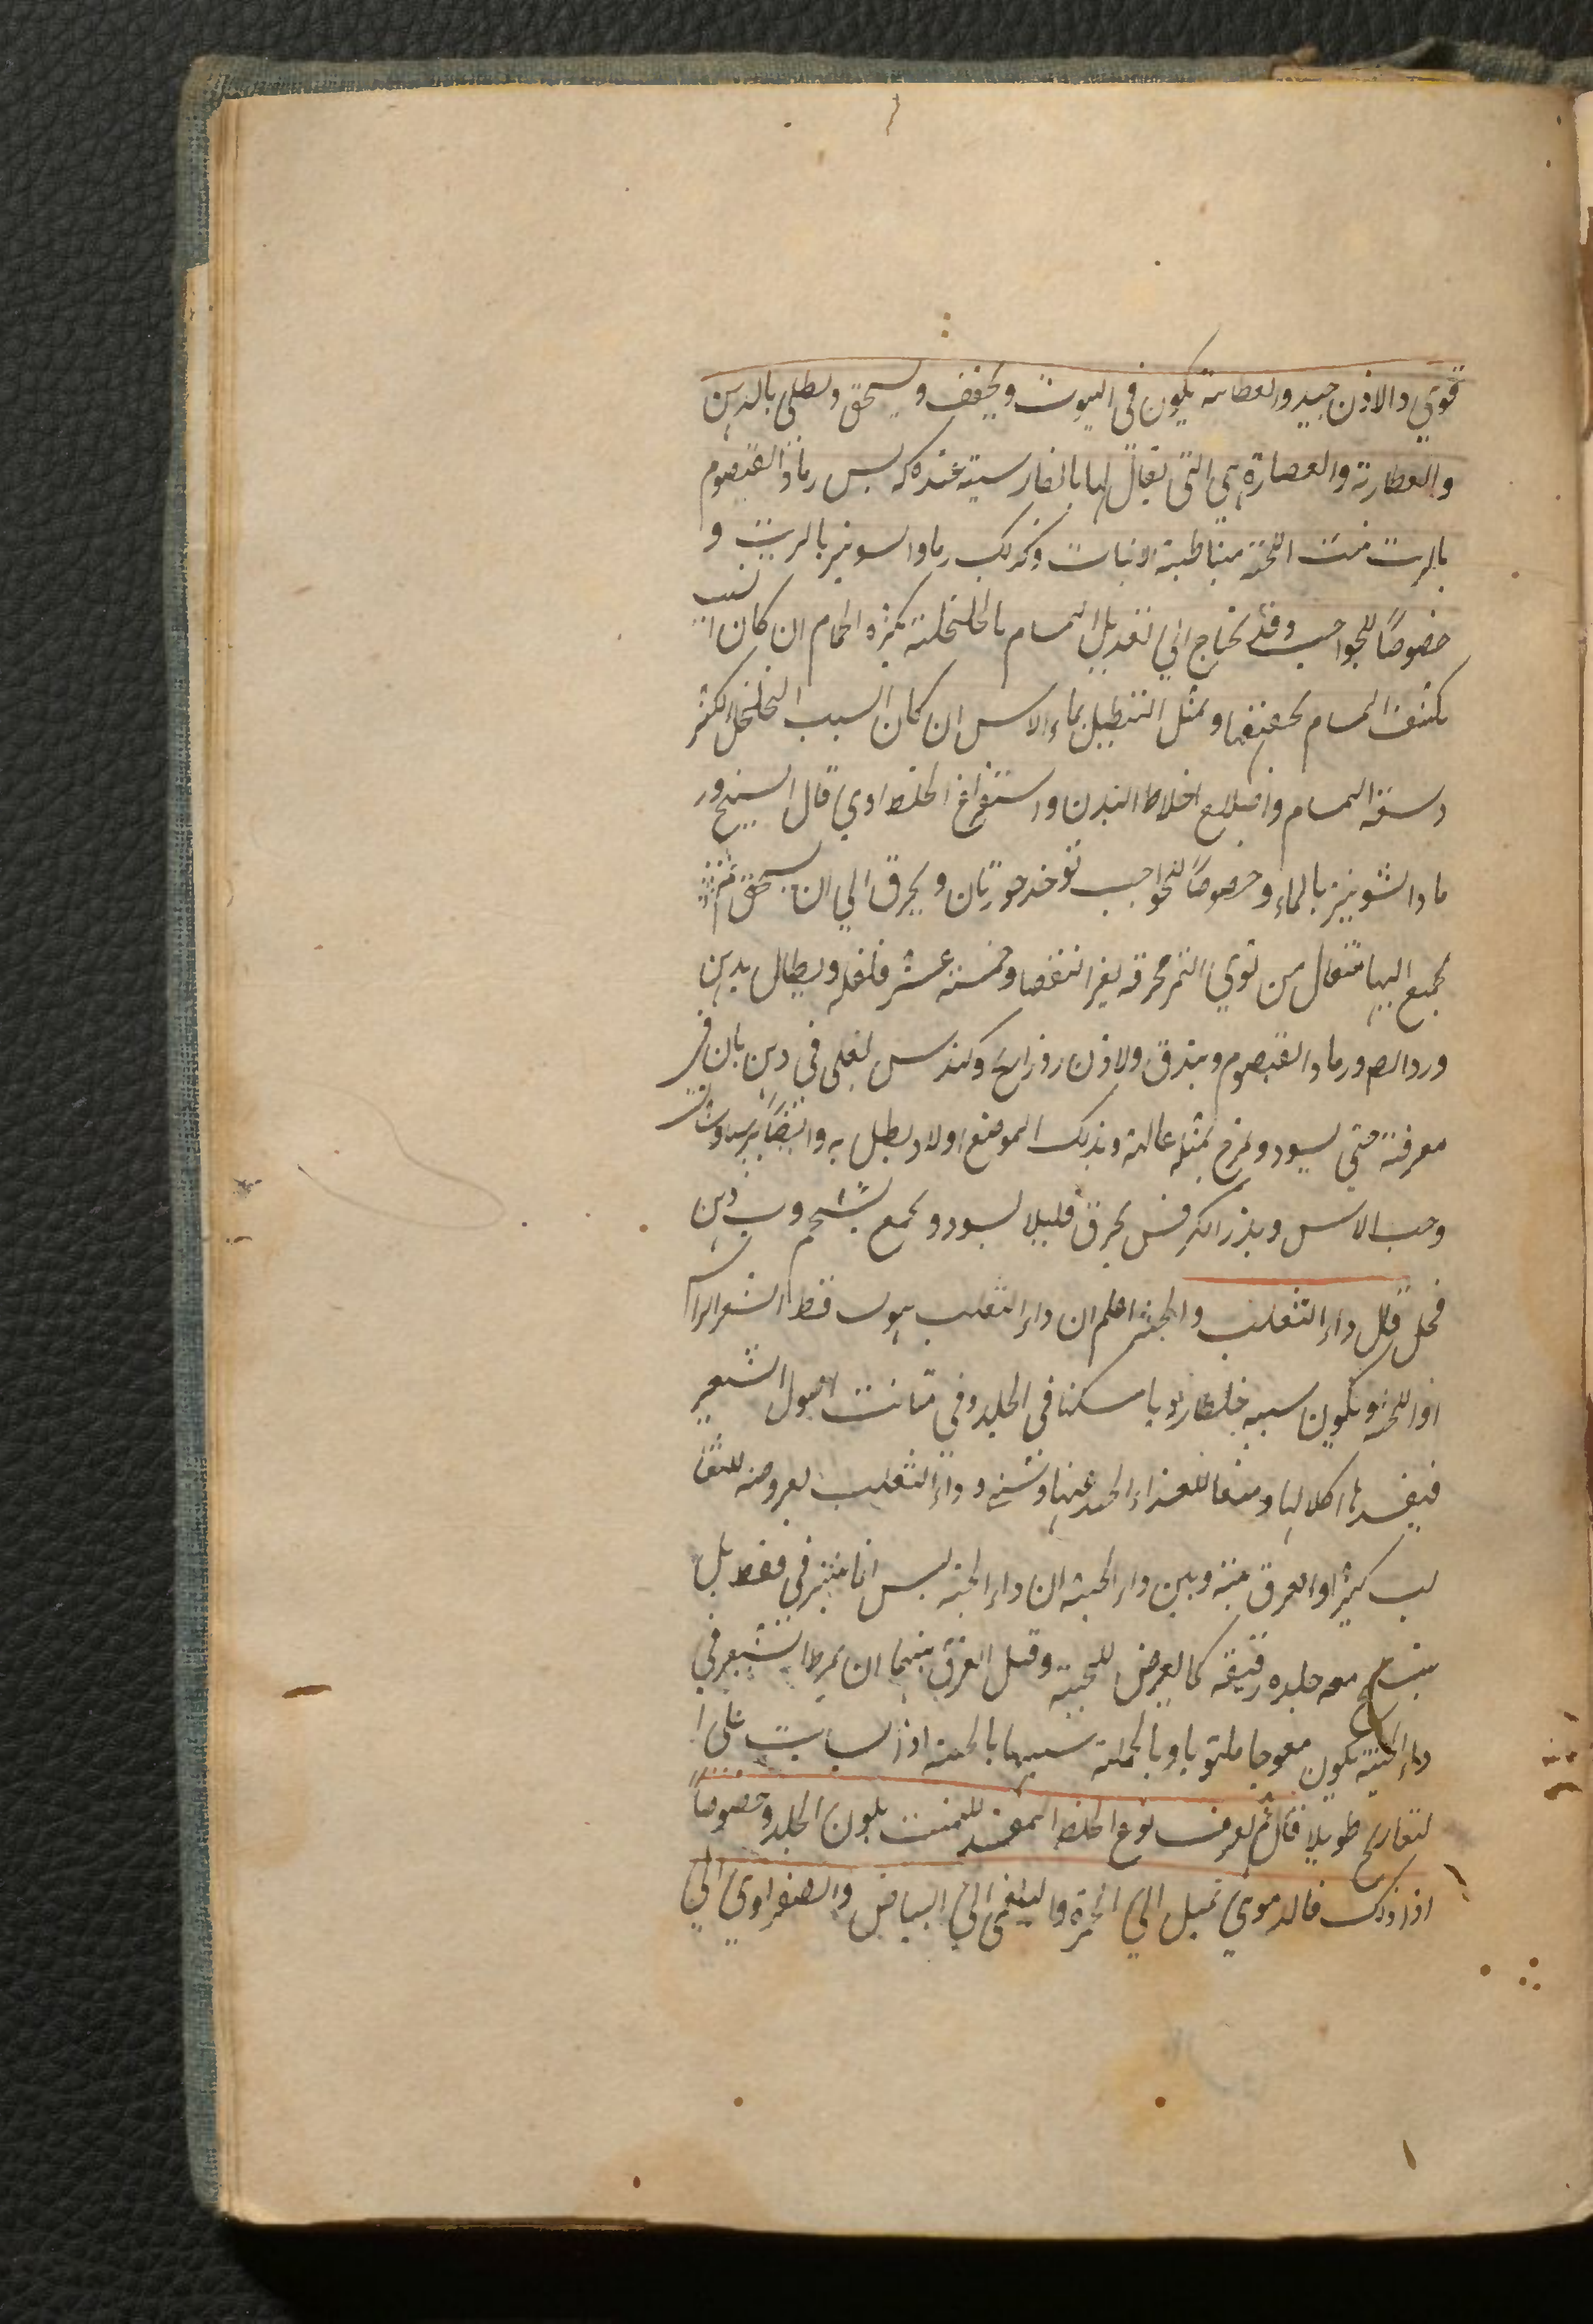 قوي والاذن جيد والعطاية يكون في البيوت ويجفف ويسحق ويطلى بالدهن
والعطارية والعصارة هي التي يقال لها بالفارسية عنده كه بس رماد القيصوم
بالزيت منبت اللحية مبتاطية الانبات وكذلك رماد السونيز بالزيت و
خصوصاً للحواجب وقد يحتاج الي تعديل المسام بالخلخلة بكثرة الحمام ان كان السبب
تكثف المسام لحفيفها وبمثل التنطيل بماء الاس ان كان السبب التخلخل الكثير
وسعة المسام واصلاح اخلاط البدن واستفراغ الخلط ادي قال الشيخ ور
ماد الشونيز بالماء وخصوصاً للحواجب توخذ جوزتان ويحرق الي ان يسحق ثم
يجمع اليها مثقال من نوي التمر محرقه بغير انتقصا وخمسة عشر فلفله ويطال بدهن
ورد الص ورماد القيصوم وبندق ولاذن وزرايح وكندس يغلى في دهن بان في
معرفة حتي يسود ويمزج بمثله عالية وبدلك الموضع اولا ويطل به وايضاً برساوشان
وحب الاس وبذر الكرفس يحرق قليلا ليسود ويجمع بشحم وب دهن
فحل قال داء الثعلب والحية اعلم ان داء الثعلب هو سقط الشعر الراس
او اللحية ويكون سببه خلطا رديا مسكنا في الجلد وفي منابت اصول الشعير
فيفسدها اكلا لها ومنعا للغذاء الجيد عنها وتسمي داء الثعلب لعروضه للثعا
لب كثيرا والفرق بينه وبين داء الحية ان داء الحية ليس انما يتنثر في فقط بل
ينسلخ معه جلده رقيقه كما يعرض للحية وقيل الفرق بينهما ان تمرط الشعر في
داء الحية يكون معوجا ملتويا وبالجملة سببها بالحية اذا انسابت علي ا
لتعاريج طويلا قال ثم يعرف نوع الخلط المفسد للمنبت بلون الجلد وخصوصاً
اذا دلك فالدموي تميل الي الحمرة والبلغمي الي البياض والصفراوي الي